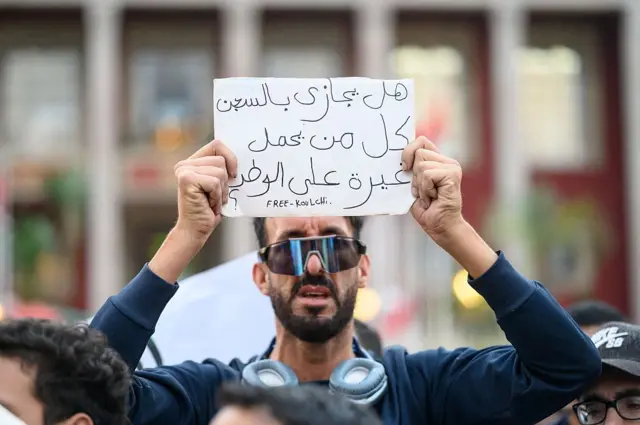 هل يجازى بالسجن
كل من يحمل
غيرة على الوطن
؟
FREE-KOULCHI.